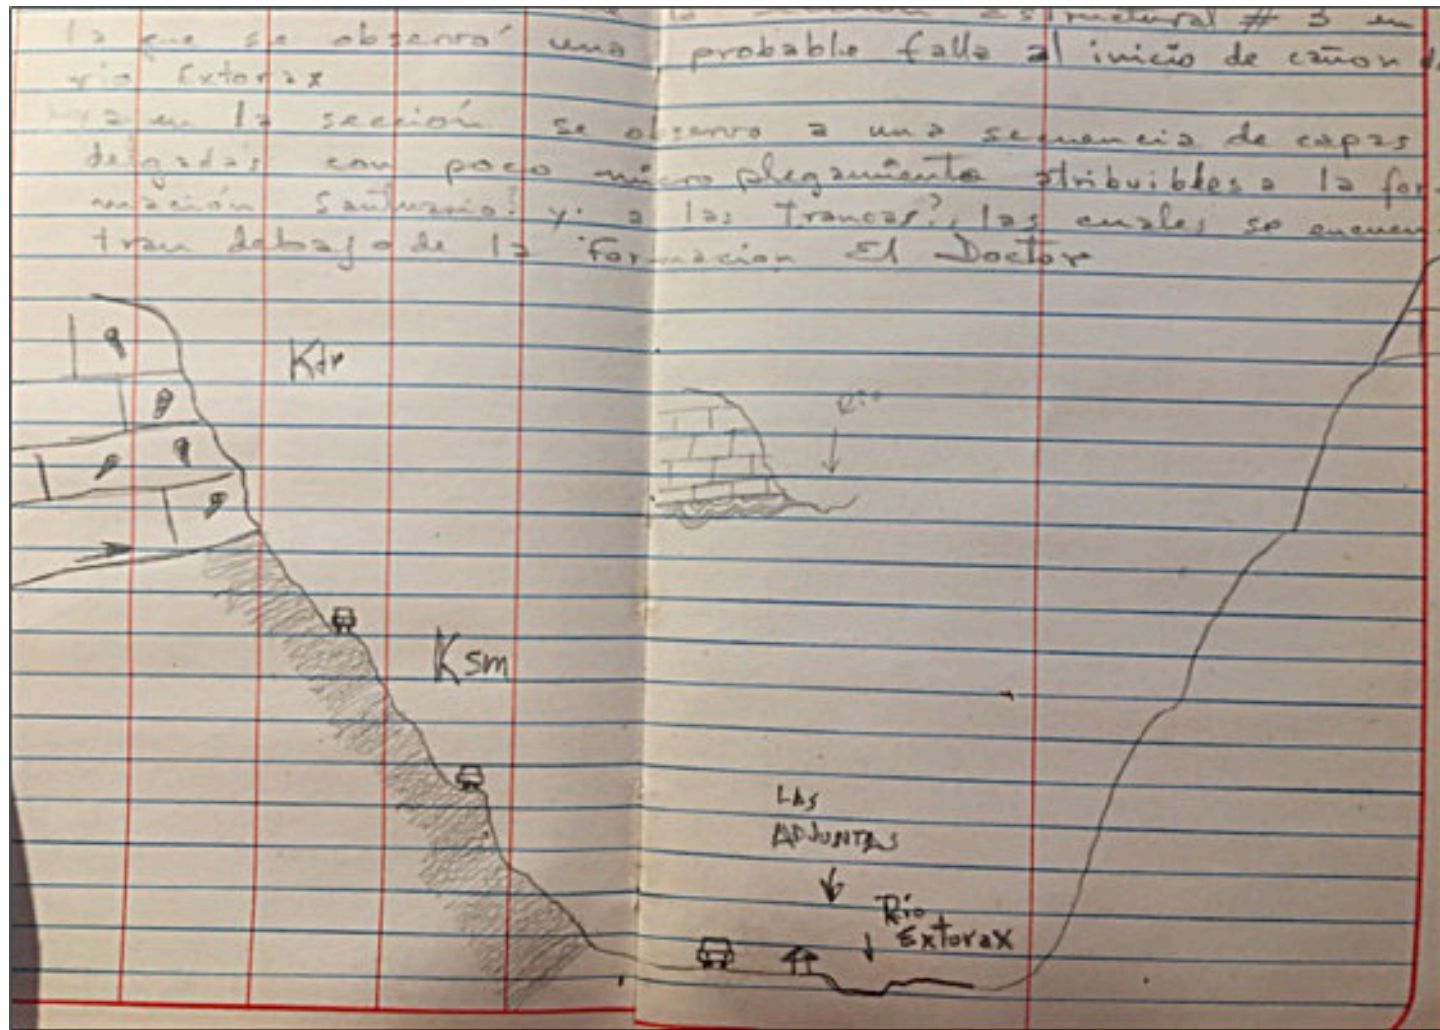 la sección estructural # 3 en
la que se observó una probable falla al inicio de cañon
rio Extorax
en la sección se observo a una secuencia de capas
delgadas con poco micro plegamiento atribuibles a la for-
mación Santuario? y. a las Trancas?, las cuales se encuen-
tran debajo de la Formacion El Doctor
Kdr
Rio
Ksm
LAS
ADJUNTAS
Río
Extorax